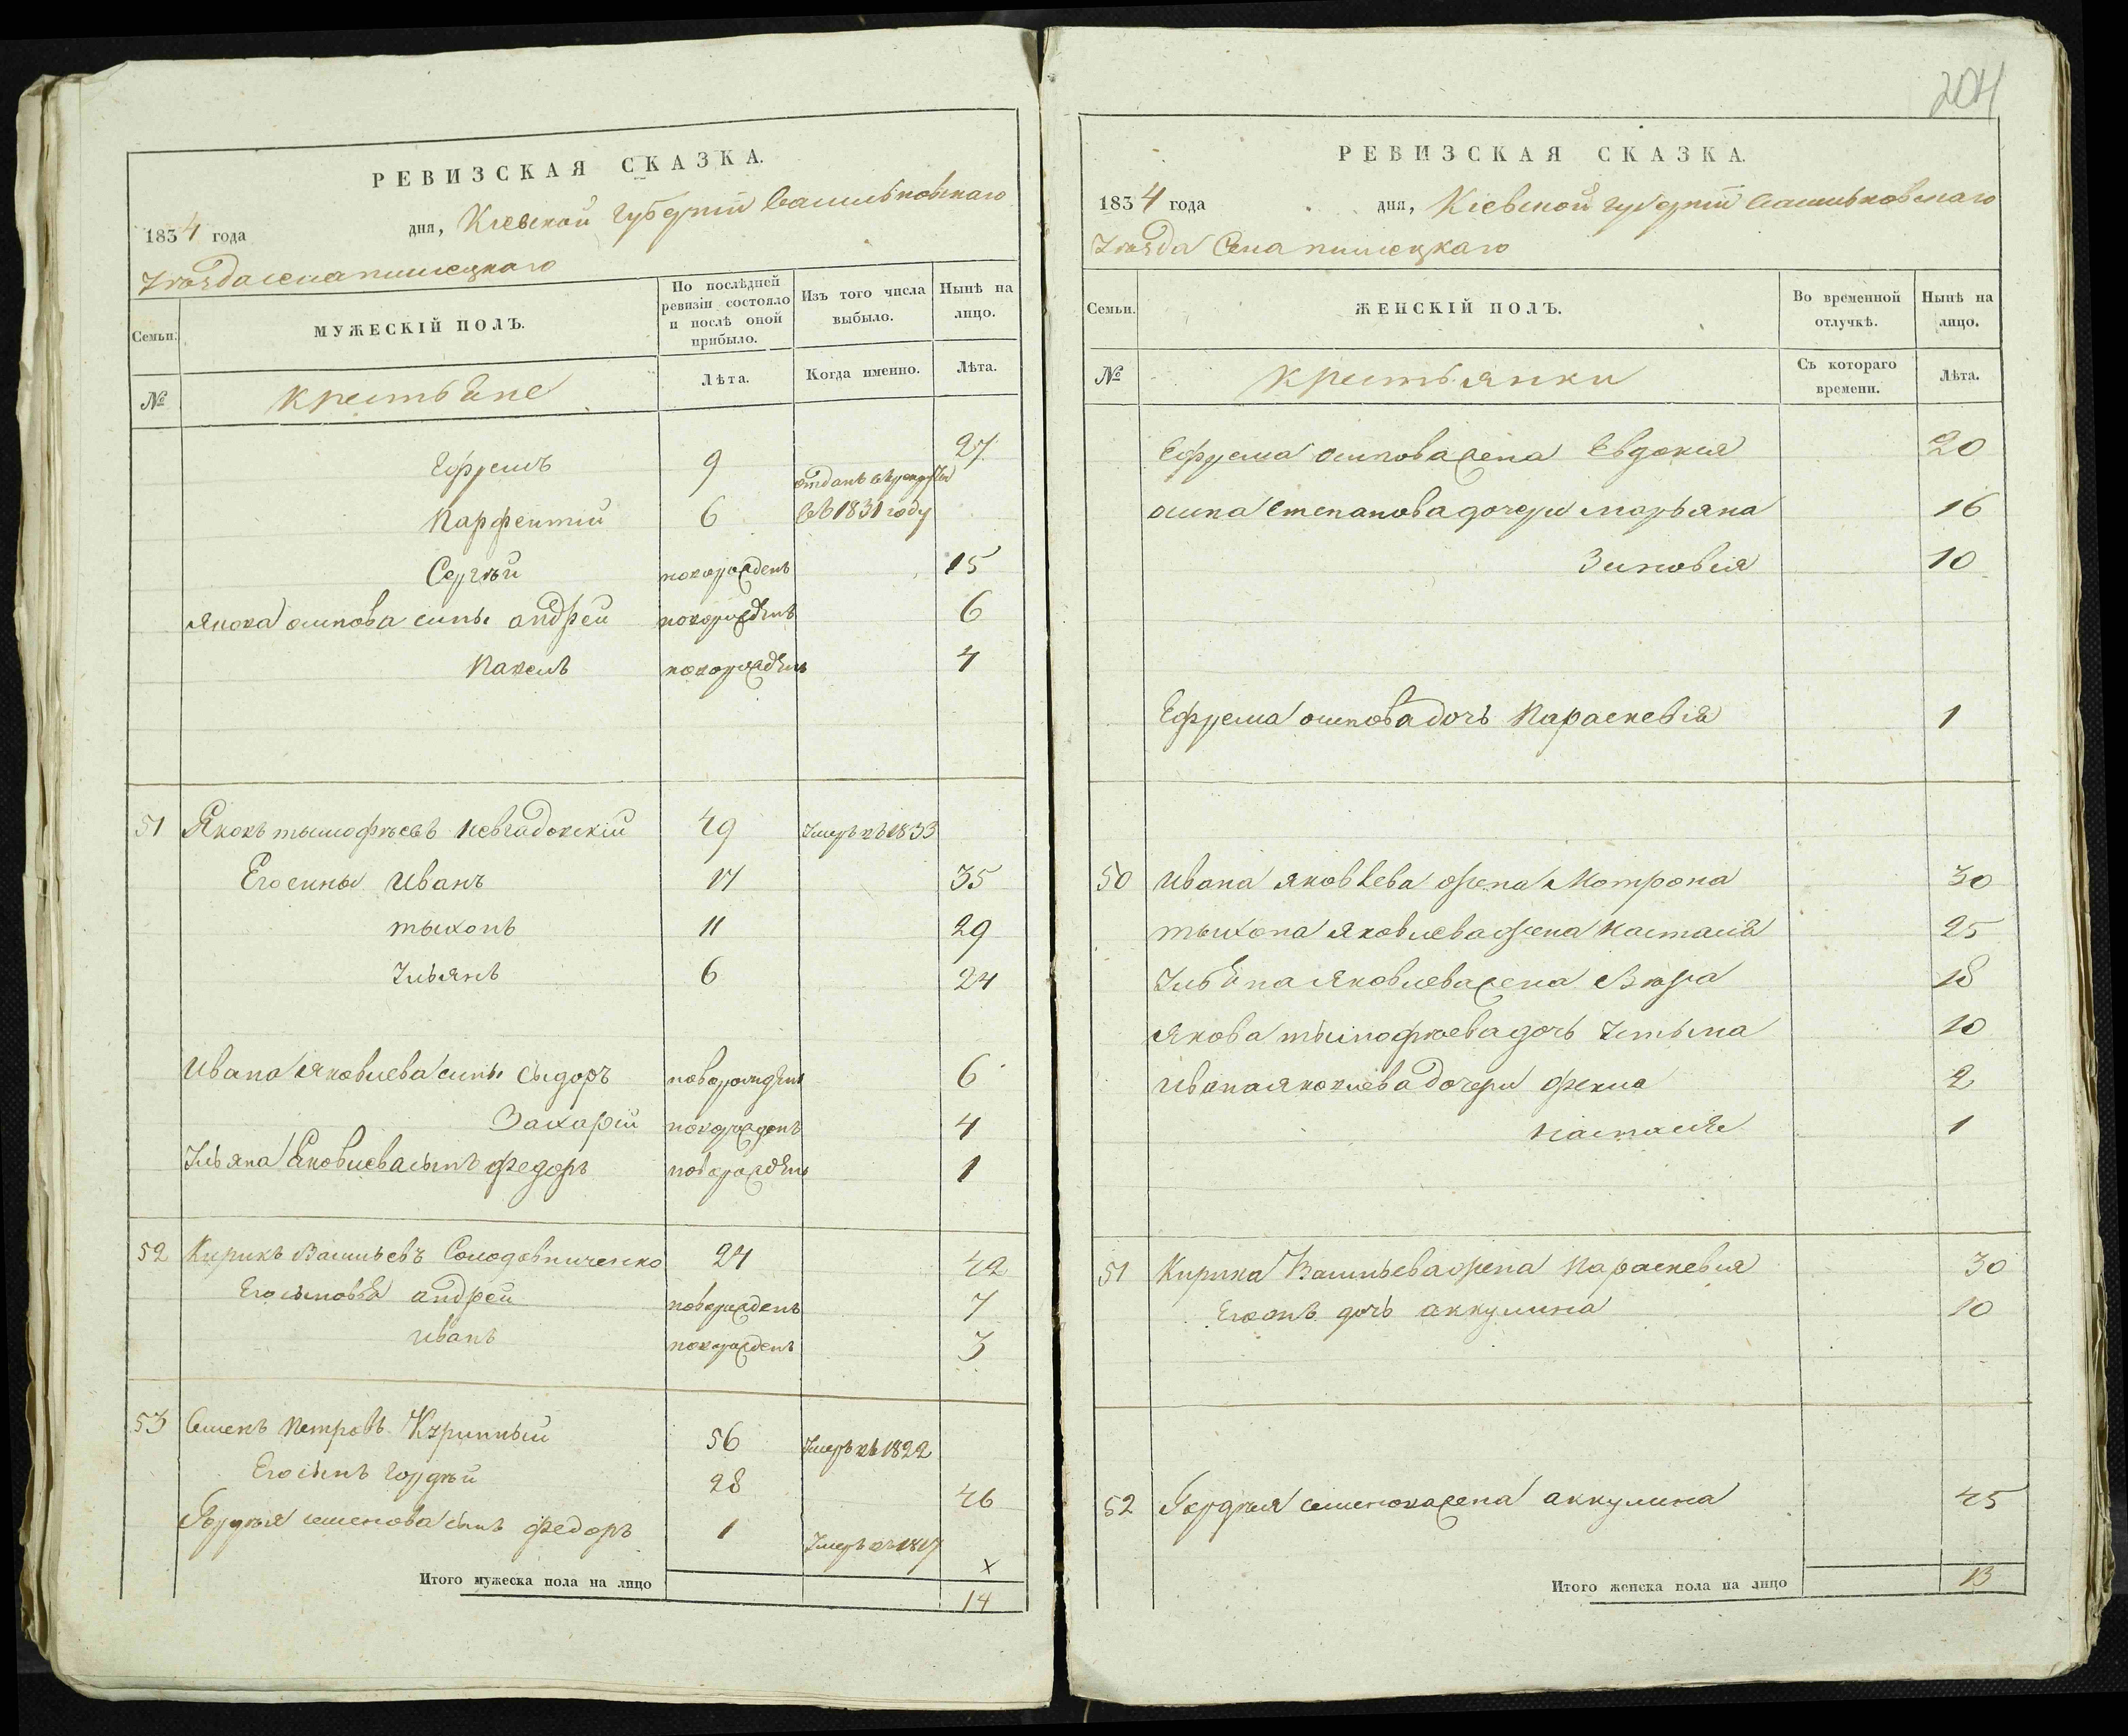 РЕВИЗСКАЯ СКАЗКА.
1834 года дня, Кіевской губерніи Васильковскаго
Уезда села
Семьи.
МУЖЕСКІЙ ПОЛЪ.
По послѣдней ревизіи состояло и послѣ оной прибыло.
Изъ того числа выбыло.
Нынѣ на лицо.
№
крестьяне
Лѣта.
Когда именно.
Лѣта.
Ефремъ 9 27
отданъ въ рекруты
Парфентій 6 въ 1831 году
Сергѣй новорожденъ 15
Якова осипова сины андрей новорожденъ 6
Павелъ новорожденъ 4
51 Яковъ тымофѣевъ 49 Умеръ въ 1833
Его сины Иванъ 17 35
тыхонъ 11 29
Ульянъ 6 24
Ивана Яковлева сины Сыдоръ новорожденъ 6
Захарій новорожденъ 4
Ульяна Яковлева сынъ федоръ новорожденъ 1
52 Кирикъ Васильевъ Солодовниченко 24 42
Его сыновья андрей новорожденъ 7
иванъ новорожденъ 3
53 Семенъ Петровъ 56 Умеръ въ 1822
Его сынъ гордѣй 28 46
Гордѣя семенова сынъ федоръ 1 Умеръ въ 1817 х
Итого мужеска пола на лицо 14
204
РЕВИЗСКАЯ СКАЗКА.
1834 года дня, Кіевской губерніи Васильковскаго
Уезда Села
Семьи.
ЖЕНСКІЙ ПОЛЪ.
Во временной отлучкѣ.
Нынѣ на лицо.
№
крестьянки
Съ котораго времени.
Лѣта.
Ефрема осипова жена Евдокия 20
осипа Степанова дочери марьяна 16
Зиновія 10
Ефрема осипова дочь Параскевія 1
50 Ивана яковлева жена Мотрона 30
тыхона яковлева жена Настасія 25
Ульяна Яковлева жена Вѣра 18
Якова тымофѣева дочь Устына 10
Ивана яковлева дочери фекла 2
настасія 1
51 Кирика Васильева жена Параскевия 30
Его онъ дочь аккулина 10
52 Гордѣя семенова жена аккулина 45
Итого женска пола на лицо 13